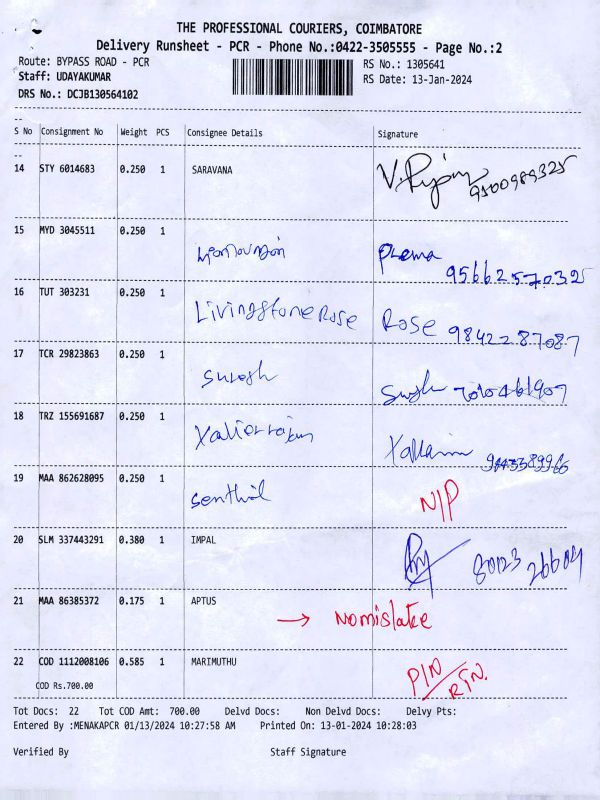 THE PROFESSIONAL COURIERS, COIMBATORE
Delivery Runsheet - PCR - Phone No.:0422-3505555 - Page No.:2
Route: BYPASS ROAD - PCR RS No.: 1305641
Staff: UDAYAKUMAR RS Date: 13-Jan-2024
DRS No.: DCJB130564102
S No Consignment No Weight PCS Consignee Details Signature
14 STY 6014683 0.250 1 SARAVANA
15 MYD 3045511 0.250 1 Prema 95662570325
16 TUT 303231 0.250 1 Livingstone Rose Rose 9842287087
17 TCR 29823863 0.250 1 Suresh
18 TRZ 155691687 0.250 1
19 MAA 862628095 0.250 1 Senthil N/P
20 SLM 337443291 0.380 1 IMPAL
21 MAA 86385372 0.175 1 APTUS → Nomislake
22 COD 1112008106 0.585 1 MARIMUTHU P/N
COD Rs.700.00 RTN.
Tot Docs: 22 Tot COD Amt: 700.00 Delvd Docs: Non Delvd Docs: Delvy Pts:
Entered By :MENAKAPCR 01/13/2024 10:27:58 AM Printed On: 13-01-2024 10:28:03
Verified By Staff Signature